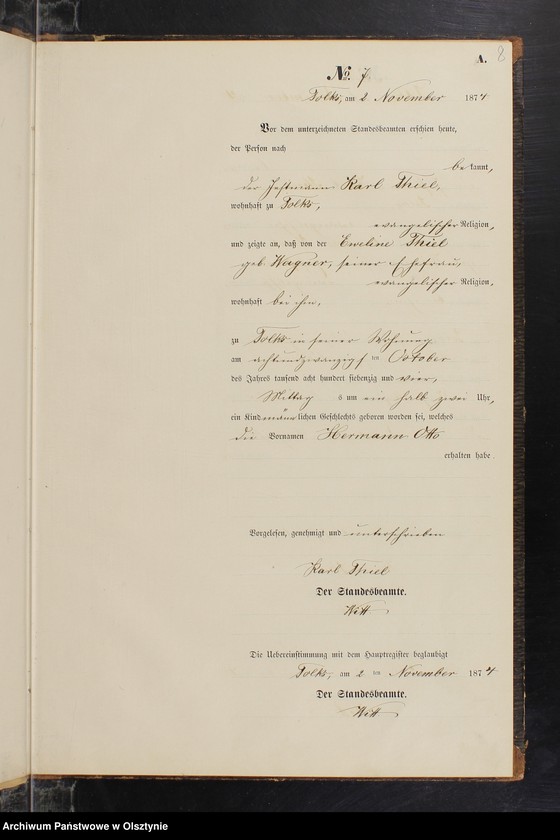 A. 8
No. 7
Tolks, am 2 November 1874
Vor dem unterzeichneten Standesbeamten erschien heute,
der Person nach
bekannt,
der Karl Thiel,
wohnhaft zu Tolks,
evangelischer Religion,
und zeigte an, daß von der Eveline Thiel
geb. Wagner, seiner Ehefrau,
evangelischer Religion,
wohnhaft bei ihm,
zu Tolks in seiner Wohnung
am achtundzwanzigsten October
des Jahres tausend acht hundert siebenzig und vier,
Mittags um ein halb zwei Uhr,
ein Kind männlichen Geschlechts geboren worden sei, welches
die Vornamen Hermann Otto
erhalten habe.
Vorgelesen, genehmigt und unterschrieben
Karl Thiel
Der Standesbeamte.
Witt
Die Uebereinstimmung mit dem Hauptregister beglaubigt
Tolks, am 2 ten November 1874
Der Standesbeamte.
Witt
Archiwum Państwowe w Olsztynie